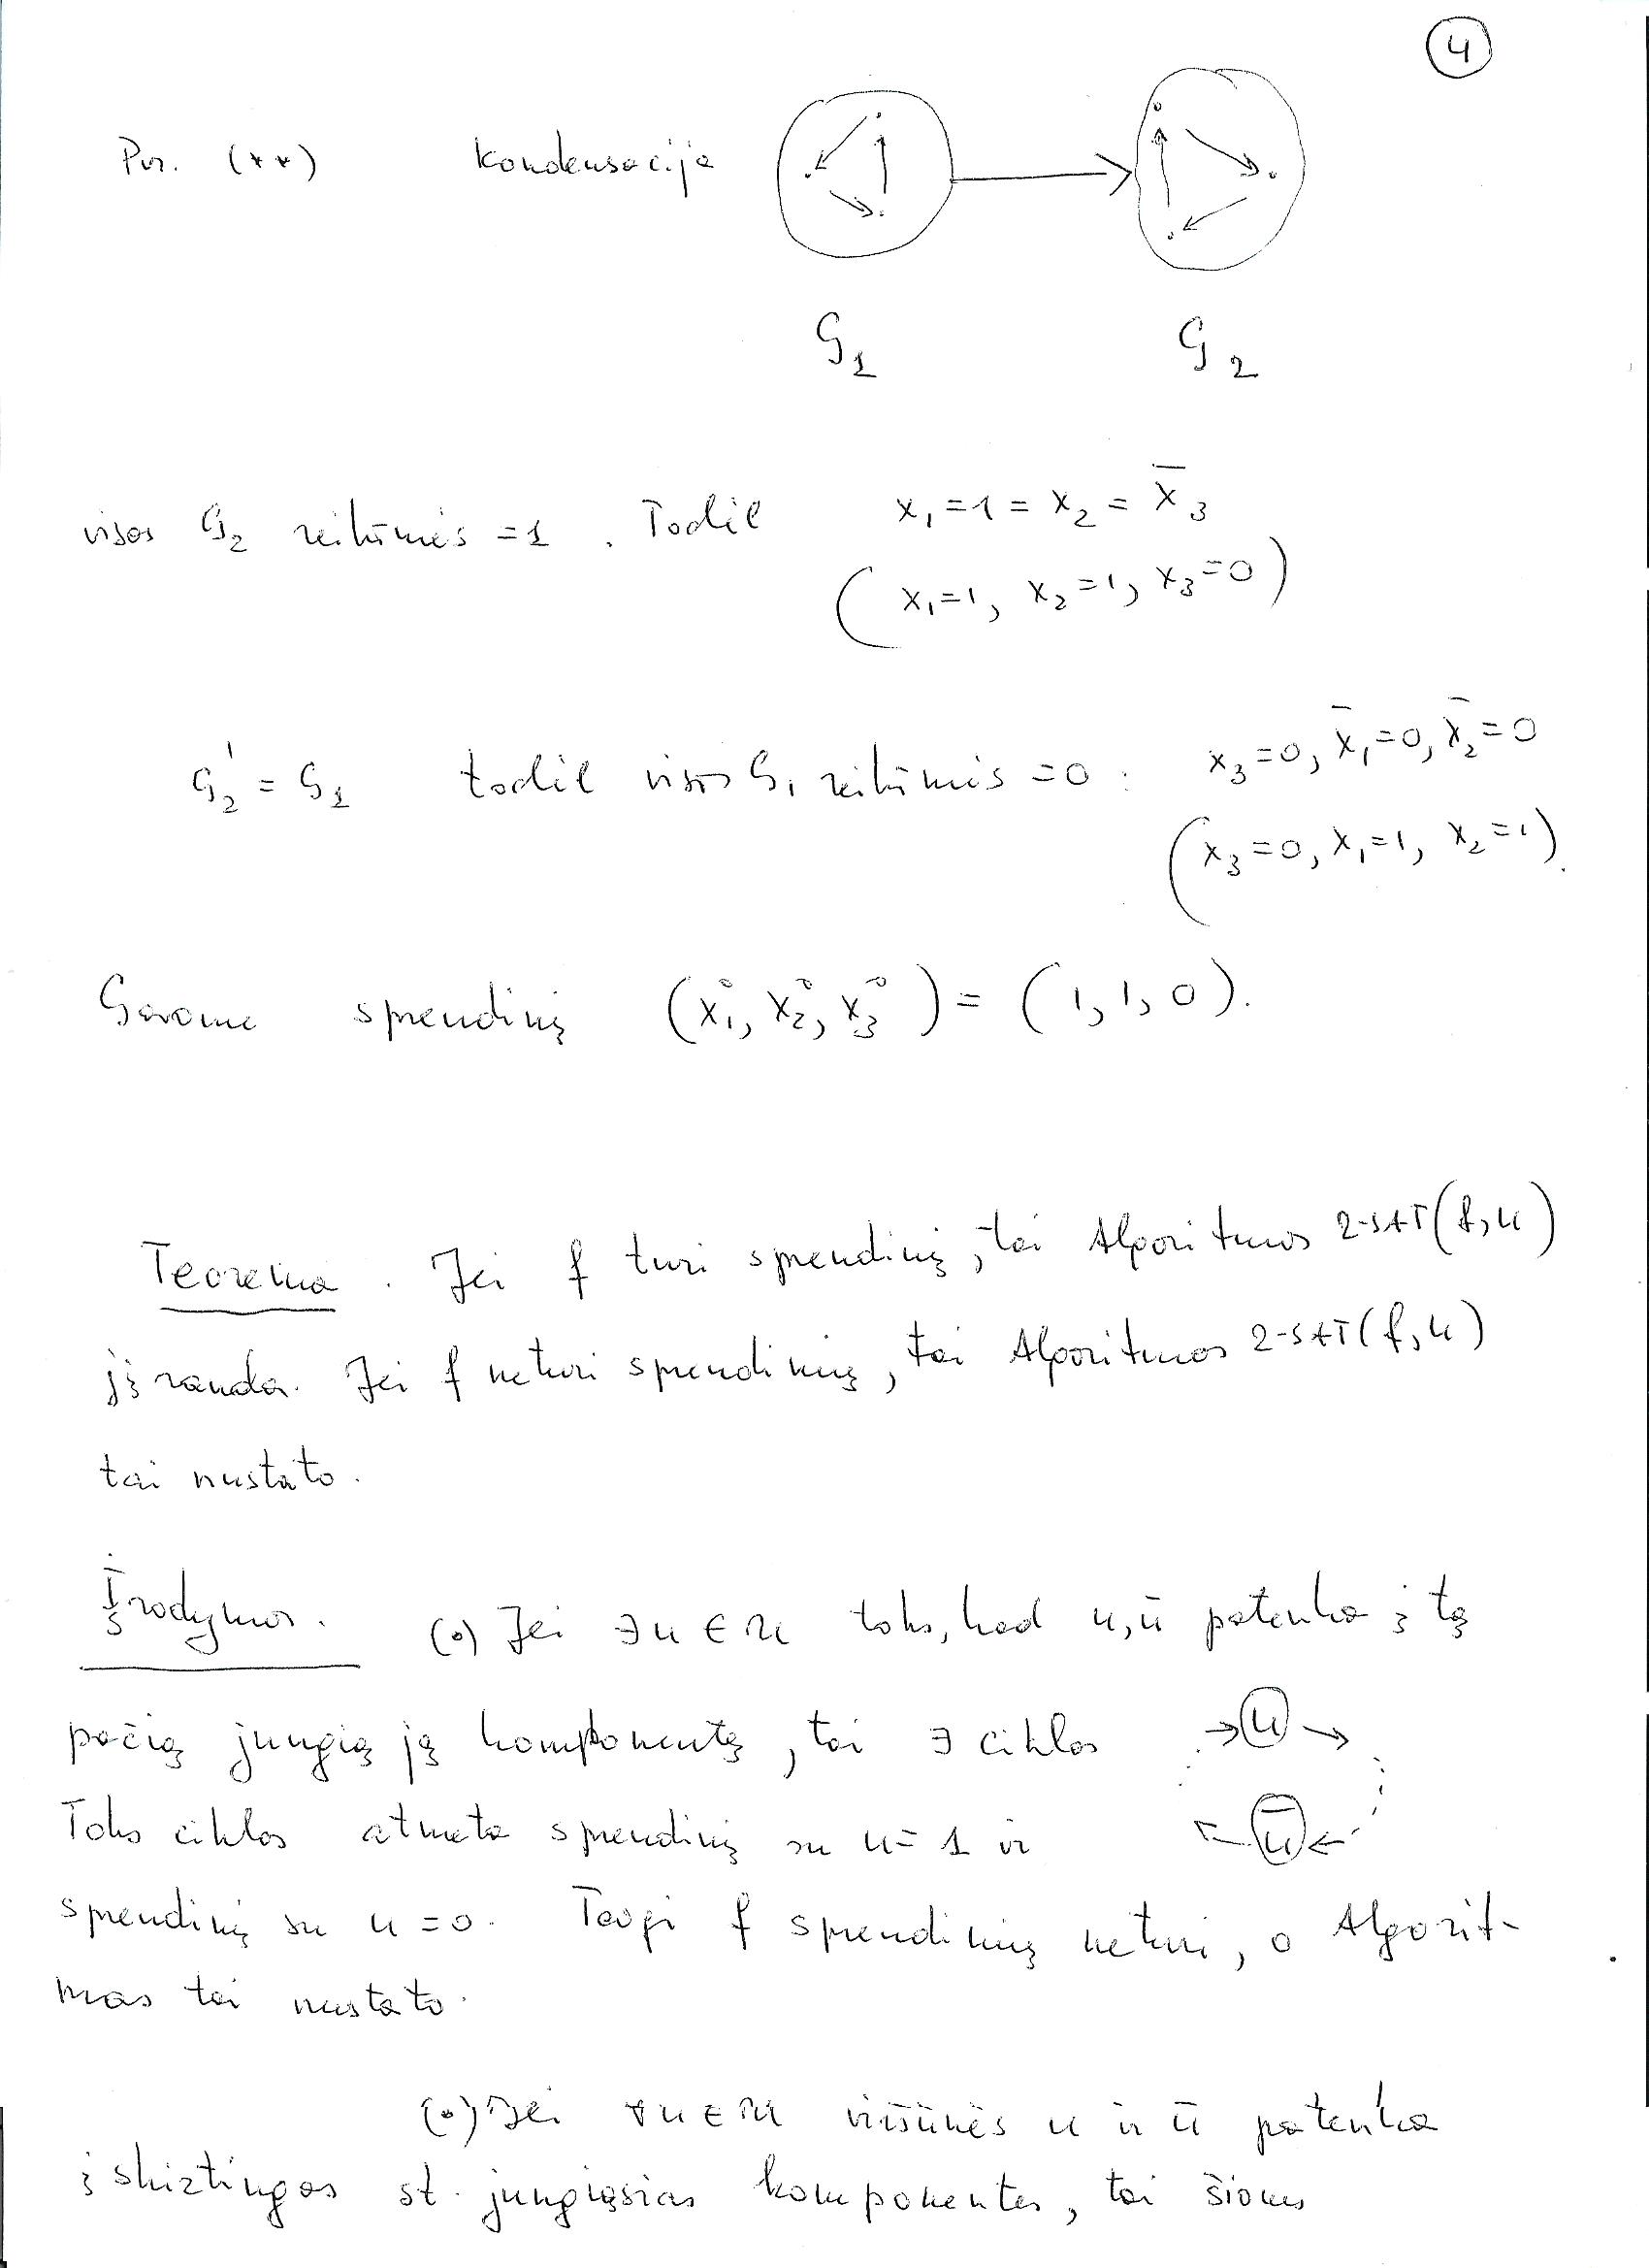 4
Pvz. (**) Kondensacija
G₁ G₂
visos G₂ reikšmės = 1. Todėl x₁ = 1 = x₂ = x̄₃
(x₁=1, x₂=1, x₃=0)
G₂' = G₁ todėl visos G₁ reikšmės = 0 : x₃=0, x̄₁=0, x̄₂=0
(x₃=0, x₁=1, x₂=1).
Gavome sprendinį (x₁°, x₂°, x₃°) = (1, 1, 0).
Teorema. Jei f turi sprendinį, tai Algoritmas 2-SAT(f,U)
jį randa. Jei f neturi sprendinių, tai Algoritmas 2-SAT(f,U)
tai nustato.
Įrodymas. (∘) Jei ∃u ∈ U toks, kad u, ū patenka į tą
pačią jungiąją komponentę, tai ∃ ciklas
u
ū
Toks ciklas atmeta sprendinį su u = 1 ir
sprendinį su u = 0. Taigi f sprendinių neturi, o Algorit-
mas tai nustato.
(∘) Jei ∀u ∈ U viršūnės u ir ū patenka
į skirtingas st. jungiąsias komponentes, tai šioms